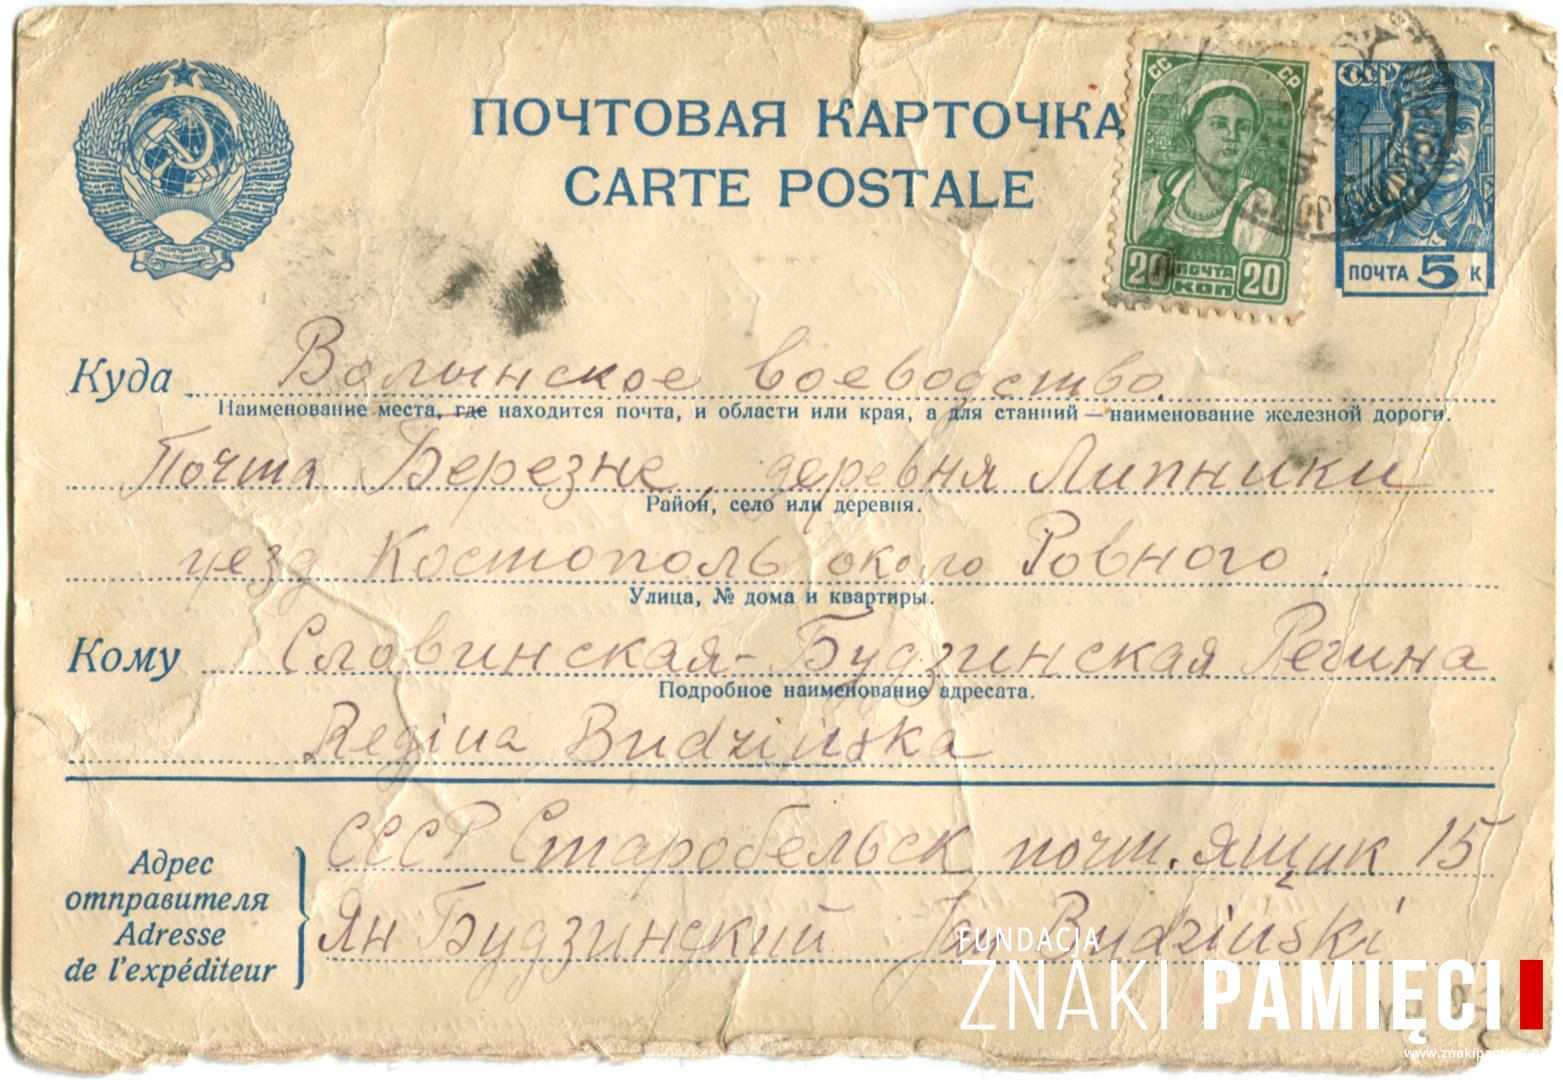 ПОЧТОВАЯ КАРТОЧКА
CARTE POSTALE
СС СР
20 ПОЧТА 20
КОП
СССР
ПОЧТА 5 К
Куда Волынское воеводство.
Наименование места, где находится почта, и области или края, а для станций — наименование железной дороги.
Почта Березне, деревня Липники
Район, село или деревня.
уезд Костополь около Ровного.
Улица, № дома и квартиры.
Кому Словинская-Будзинская Регина
Подробное наименование адресата.
Regina Budzińska
Адрес
отправителя
Adresse
de l'expéditeur
СССР Старобельск почт. ящик 15
Ян Будзинский Jan Budziński
FUNDACJA
ZNAKI PAMIĘCI